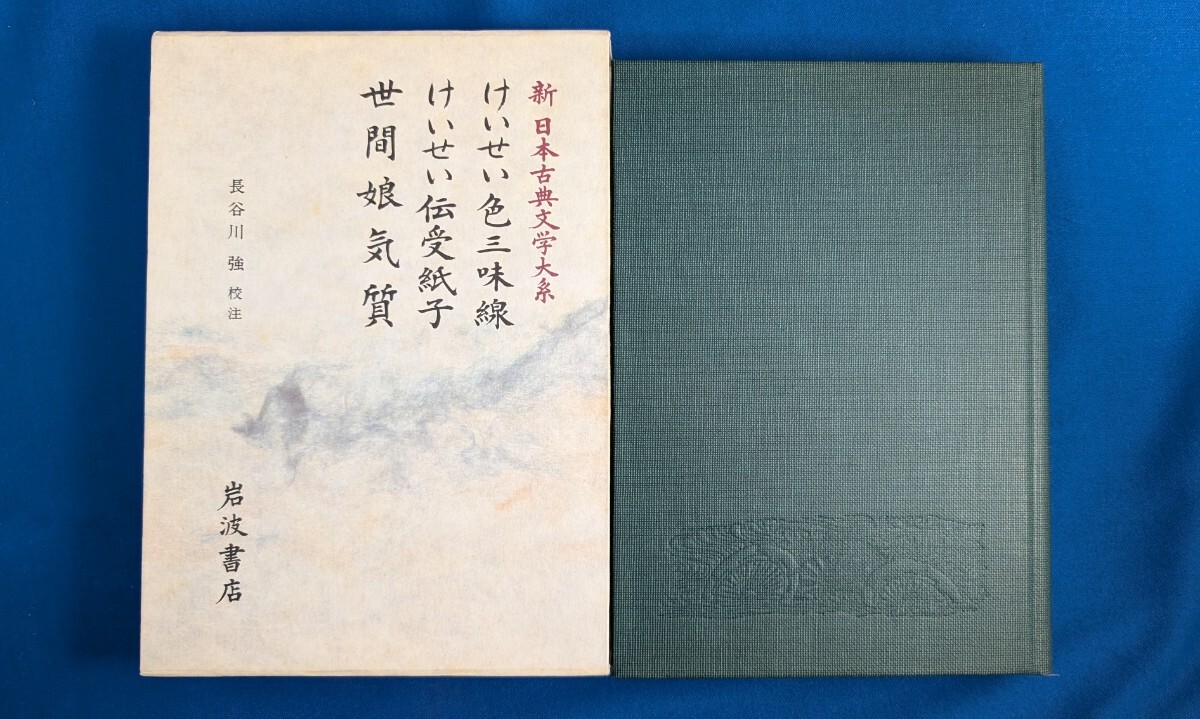 新 日本古典文学大系
けいせい色三味線
けいせい伝受紙子
世間娘気質
長谷川 強 校注
岩波書店